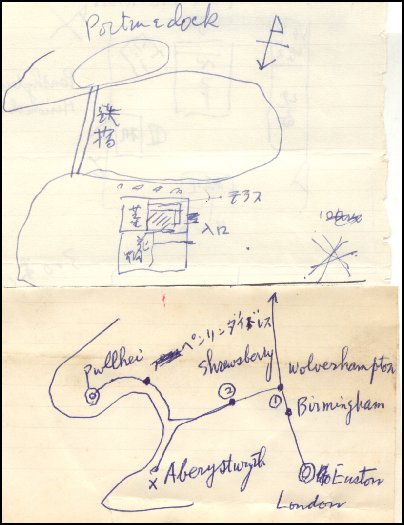 Portmedock
鉄橋
テラス
入口
ペンリンダイドレス
Pwllhei
Shrewsberry
②
①
wolverhampton
Birmingham
Aberystwyth
Euston
London